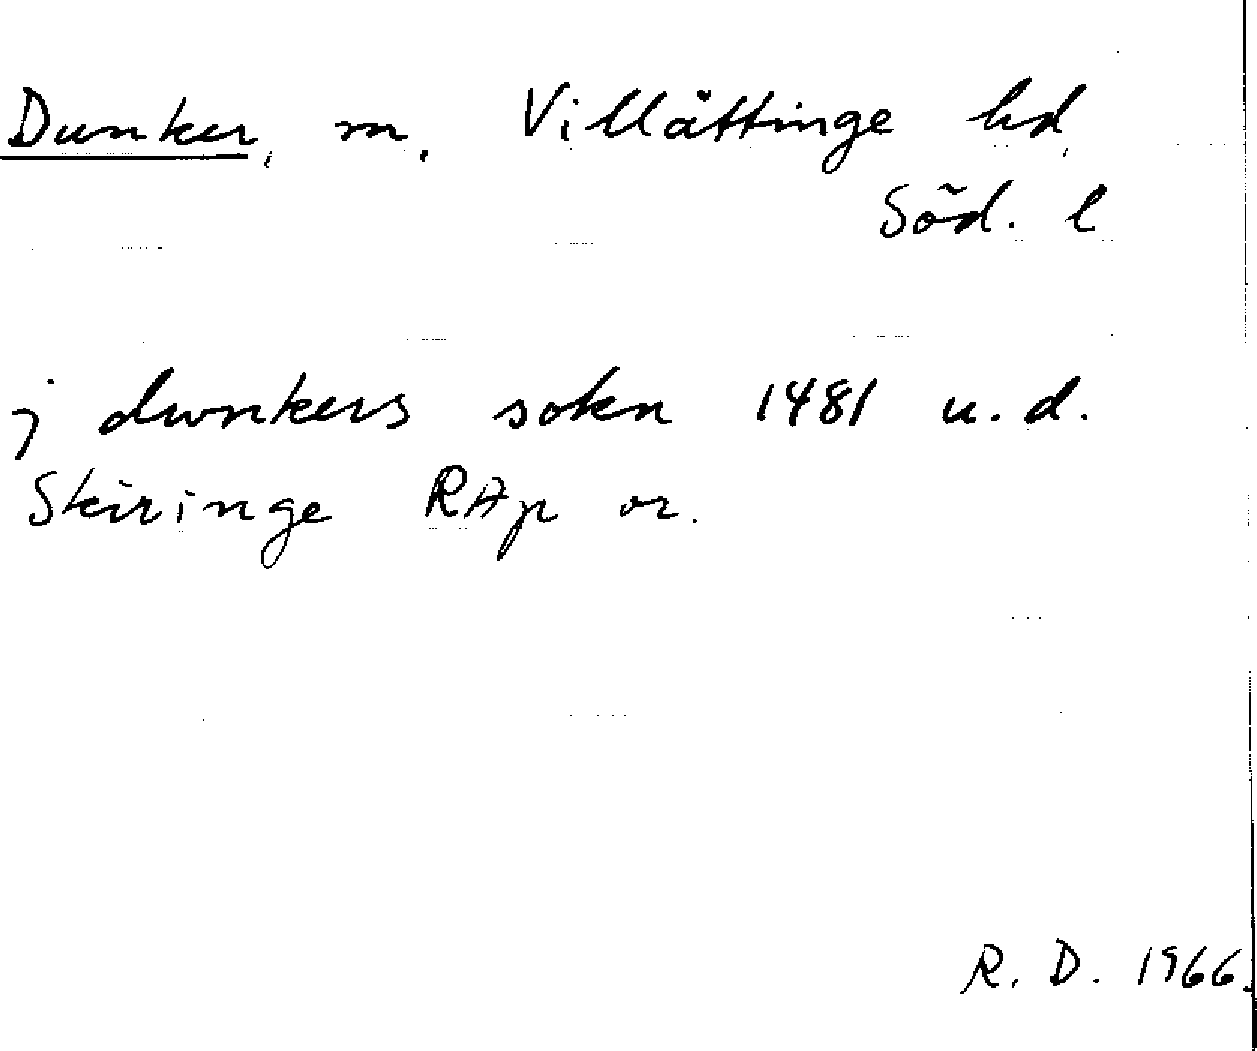 Dunker, sn, Villåttinge hd,
Söd. l
j dunkers sokn 1481 u.d.
Skiringe RAp or.
R. D. 1966.